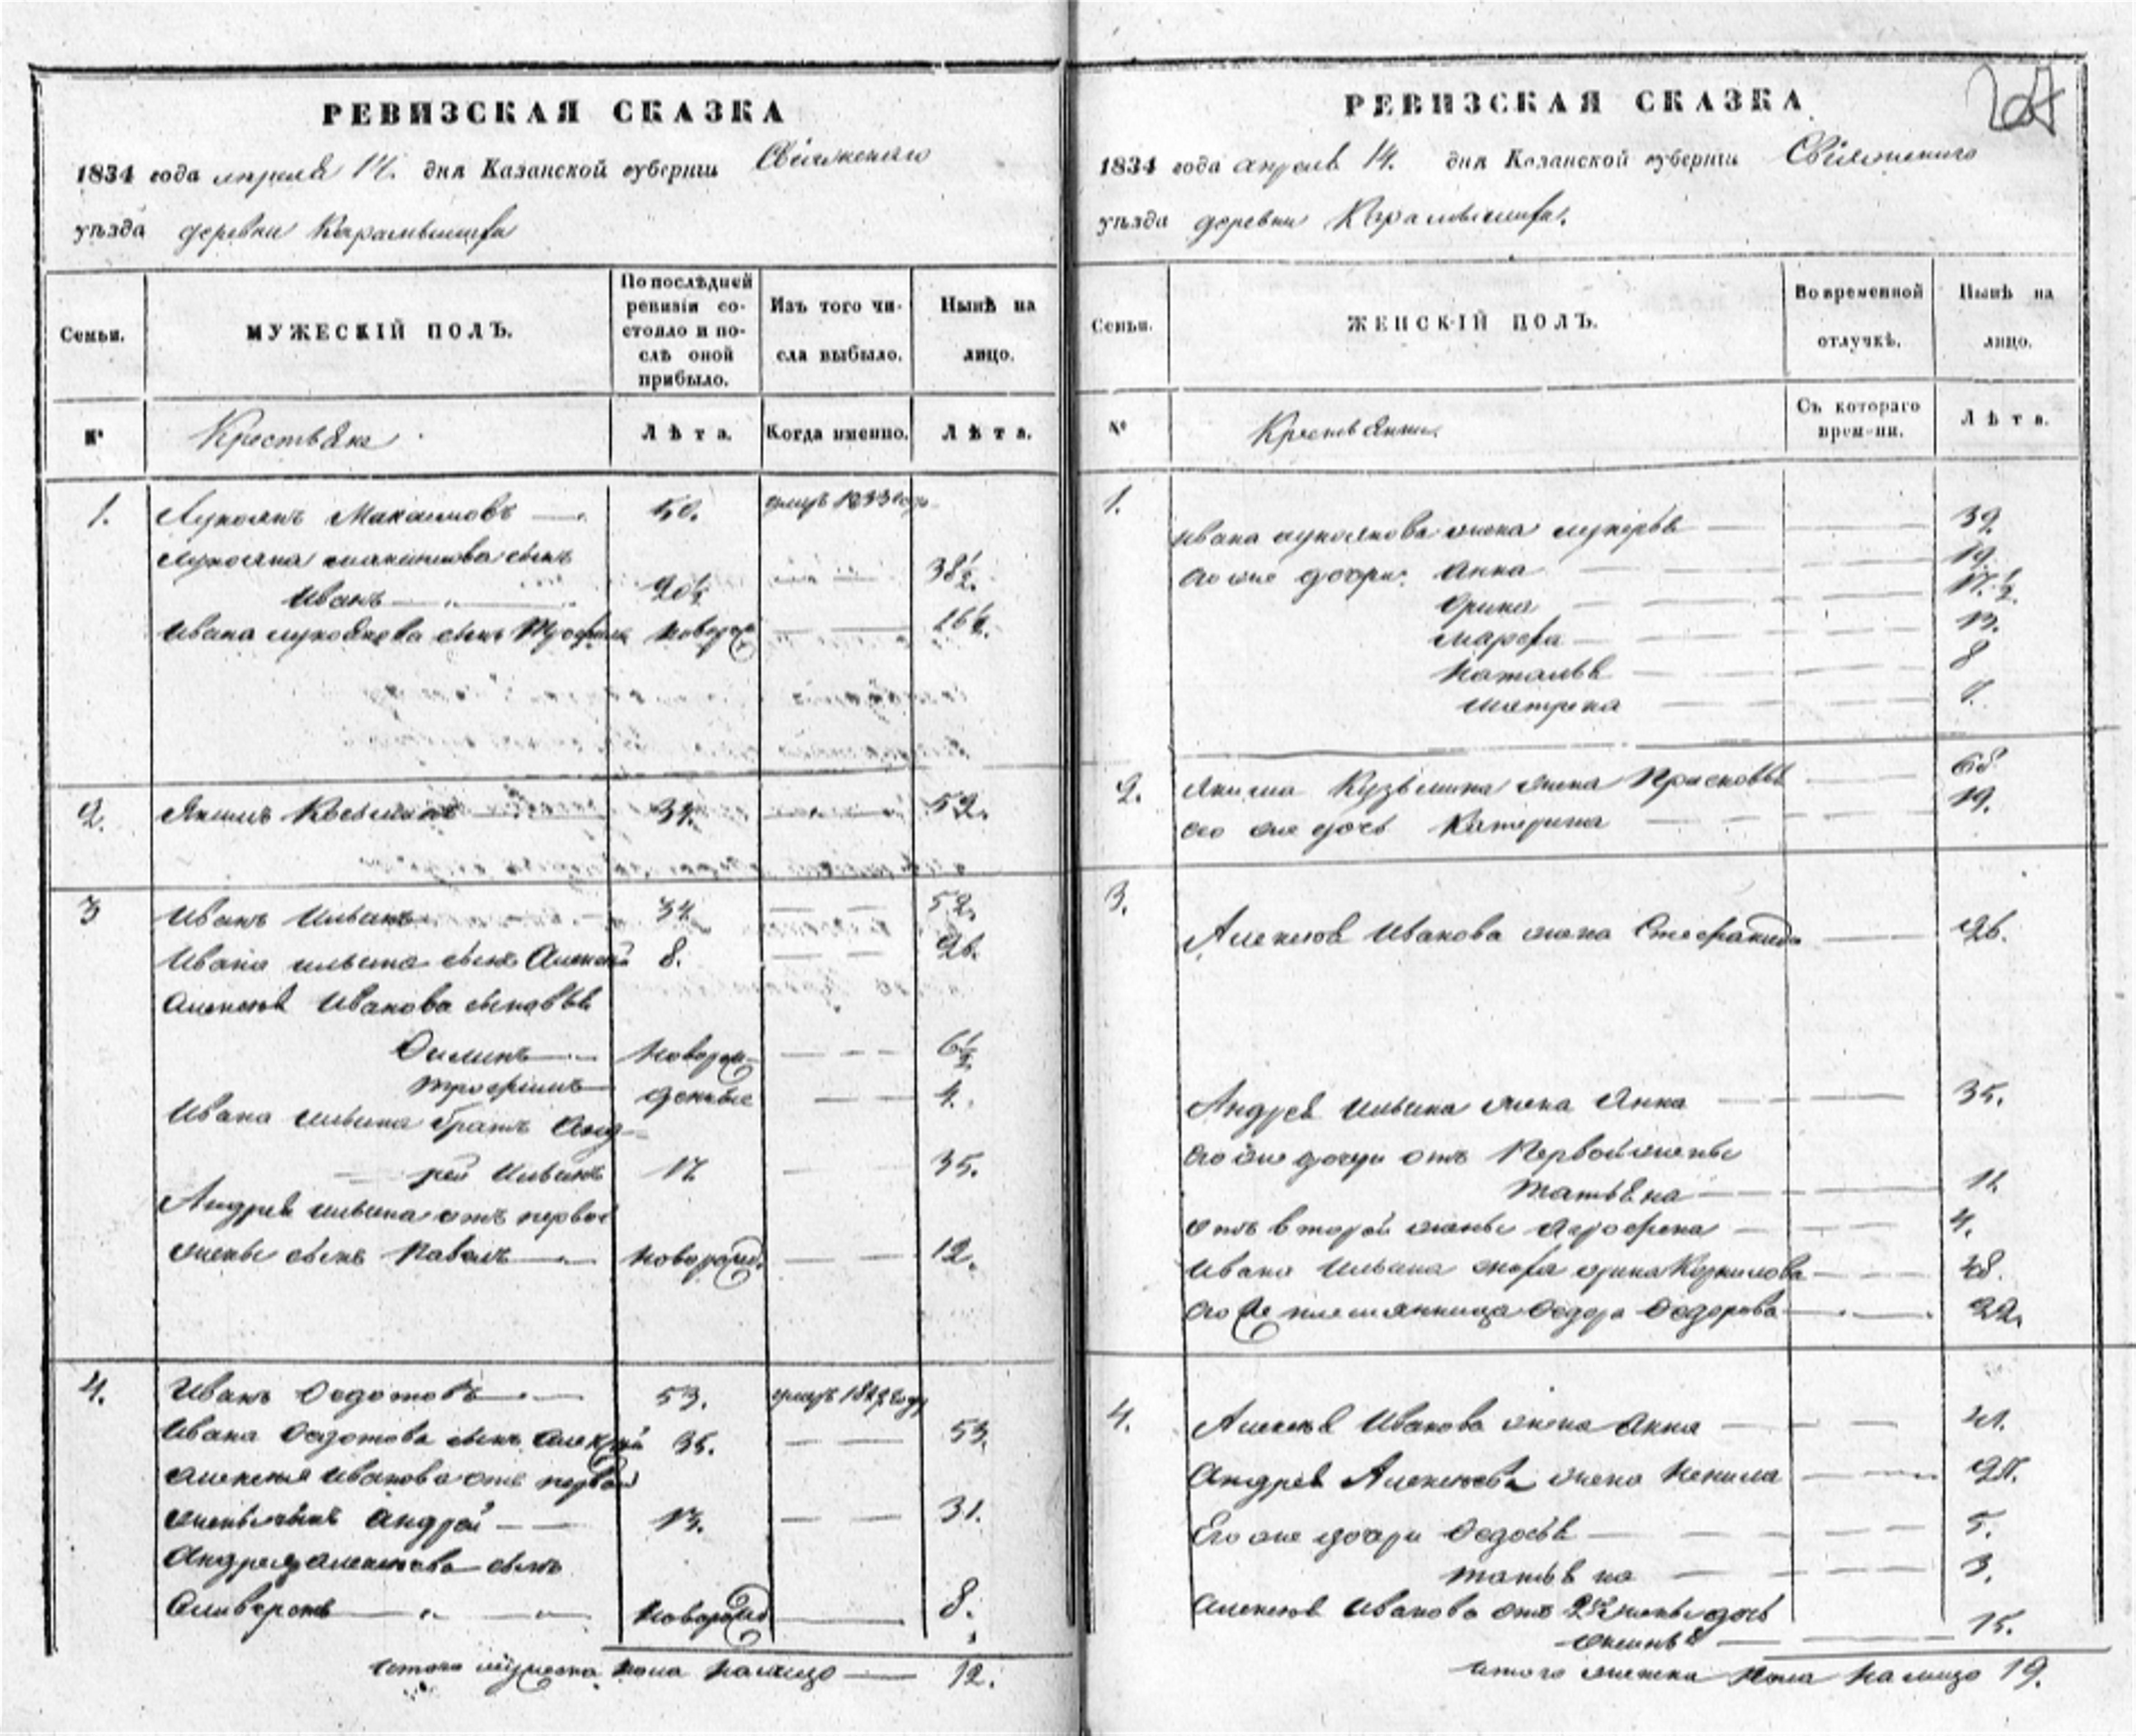 РЕВИЗСКАЯ СКАЗКА
1834 года апреля 14. дня Казанской губернии Свіяжскаго
уѣзда деревни
Семьи.
МУЖЕСКІЙ ПОЛЪ.
По послѣдней ревизіи состояло и послѣ оной прибыло.
Изъ того числа выбыло.
Нынѣ на лицо.
№
Крестьяне
Лѣта.
Когда именно.
Лѣта.
1. Лукоянъ Максимовъ 50. умеръ 1833 году
Лукояна Максимова сынъ
Иванъ 20½ 38½.
Ивана Лукоянова сынъ новорож 16½.
2. Якимъ Козьминъ 34. 52.
3 Иванъ Ильинъ 34. 52.
Ивана Ильина сынъ Алексей 8. 26.
Алексея Иванова сыновья
Филипъ новорож- 6½
Трофимъ денные 4.
Ивана Ильина братъ Анд-
рей Ильинъ 17 35.
Андрея Ильина отъ первой
жены сынъ Павелъ новорожд. 12.
4. Иванъ Федотовъ 53. умеръ году
Ивана Федотова сынъ Алексей 35. 53.
Алексея Иванова отъ первой
жены сынъ Андрей 13. 31.
Андрея Алексеева сынъ
Селиверстъ новорожд 8.
Итого мужеска пола налицо 12.
РЕВИЗСКАЯ СКАЗКА
1834 года апреля 14. дня Казанской губерніи Свіяжскаго
уѣзда деревни
Семьи.
ЖЕНСКІЙ ПОЛЪ.
Во временной отлучкѣ.
Нынѣ на лицо.
№
Крестьянки.
Съ котораго времени.
Лѣта.
1.
Ивана Лукоянова жена Лукерья 39.
Его же дочери Анна 19.
Орина 17.½.
Марфа 13.
Наталья 8
Матрена
2. Якима Кузьмина жена Прасковья
его же дочь Катерина 19.
3.
Алексея Иванова жена Стефанида 26.
Андрея Ильина жена Анна 35.
Его же дочери отъ Первой жены
Татьяна 11.
Отъ второй жены Агрофена 4.
Ивана Ильина сноха Орина Корнилова 48.
его же племянница Федора Федорова 22.
4. Алексея Иванова жена Анна 41.
Андрея Алексеева жена
Его же дочери Федосья 5.
Татьяна 3.
Алексея Иванова отъ 2й жены дочь
Оксинья 15.
Итого женска пола налицо 19.